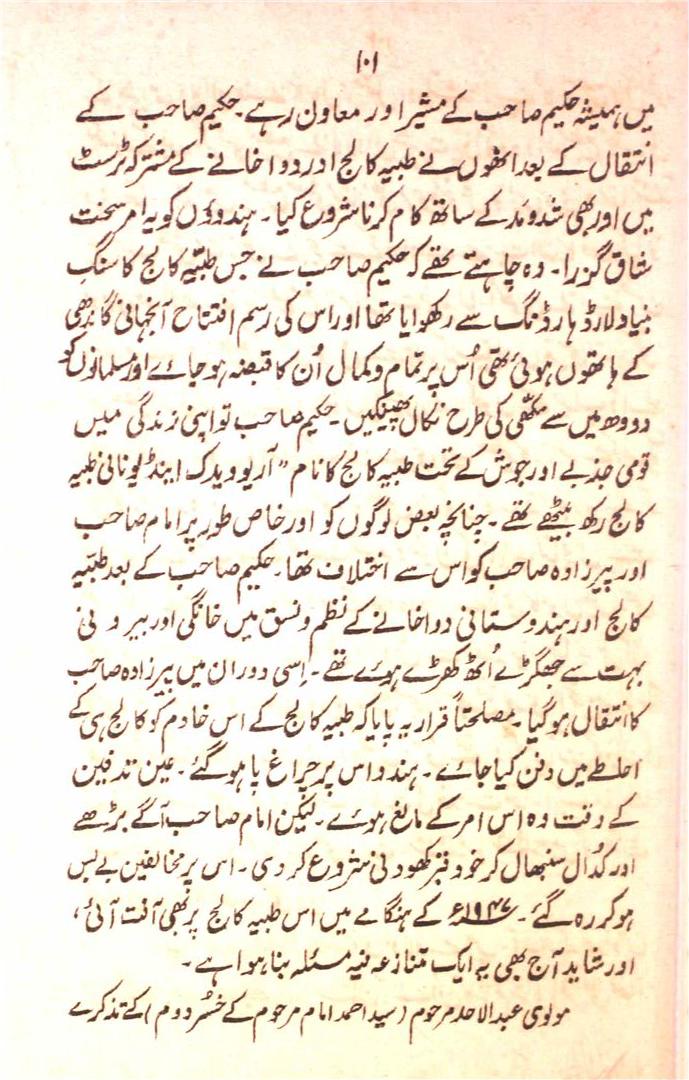 ۱۰۱
میں ہمیشہ حکیم صاحب کے مشیر اور معاون رہے ۔ حکیم صاحب کے
انتقال کے بعد انھوں نے طبیہ کالج اور دواخانے کے مشترکہ ٹرسٹ
میں اور بھی شد و مد کے ساتھ کام کرنا شروع کیا ۔ ہندوؤں کو یہ امر سخت
شاق گزرا ۔ وہ چاہتے تھے کہ حکیم صاحب نے جس طبّیہ کالج کا سنگِ
بنیاد لارڈ ہارڈنگ سے رکھوایا تھا اور اس کی رسم افتتاح آنجہانی گاندھی
کے ہاتھوں ہوئی تھی اُس پر تمام و کمال اُن کا قبضہ ہو جائے اور مسلمانوں کو
دودھ میں سے مکھّی کی طرح نکال پھینکیں ۔ حکیم صاحب تو اپنی زندگی میں
قومی جذبے اور جوش کے تحت طبیہ کالج کا نام " آریوویدک اینڈ یونانی طبیہ
کالج رکھ بیٹھے تھے ۔ چنانچہ بعض لوگوں کو اور خاص طور پر امام صاحب
اور پیرزادہ صاحب کو اس سے اختلاف تھا ۔ حکیم صاحب کے بعد طبّیہ
کالج اور ہندوستانی دواخانے کے نظم و نسق میں خانگی اور بیرونی
بہت سے جھگڑے اُٹھ کھڑے ہوئے تھے ۔ اِسی دوران میں پیرزادہ صاحب
کا انتقال ہو گیا ۔ مصلحتاً قرار یہ پایا کہ طبیہ کالج کے اس خادم کو کالج ہی کے
احاطے میں دفن کیا جائے ۔ ہندو اس پر چراغ پا ہو گئے ۔ عین تدفین
کے وقت وہ اس امر کے مانع ہوئے ۔ لیکن امام صاحب آگے بڑھے
اور کدال سنبھال کر خود قبر کھودنی شروع کر دی ۔ اس پر مخالفین بے بس
ہو کر رہ گئے ۔ ۱۹۴۷ء کے ہنگامے میں اس طبیہ کالج پر بھی آفت آئی ،
اور شاید آج بھی یہ ایک متنازعہ فیہ مسئلہ بنا ہوا ہے ۔
مولوی عبدالاحد مرحوم ( سید احمد امام مرحوم کے خُسر دوم ) کے تذکرے